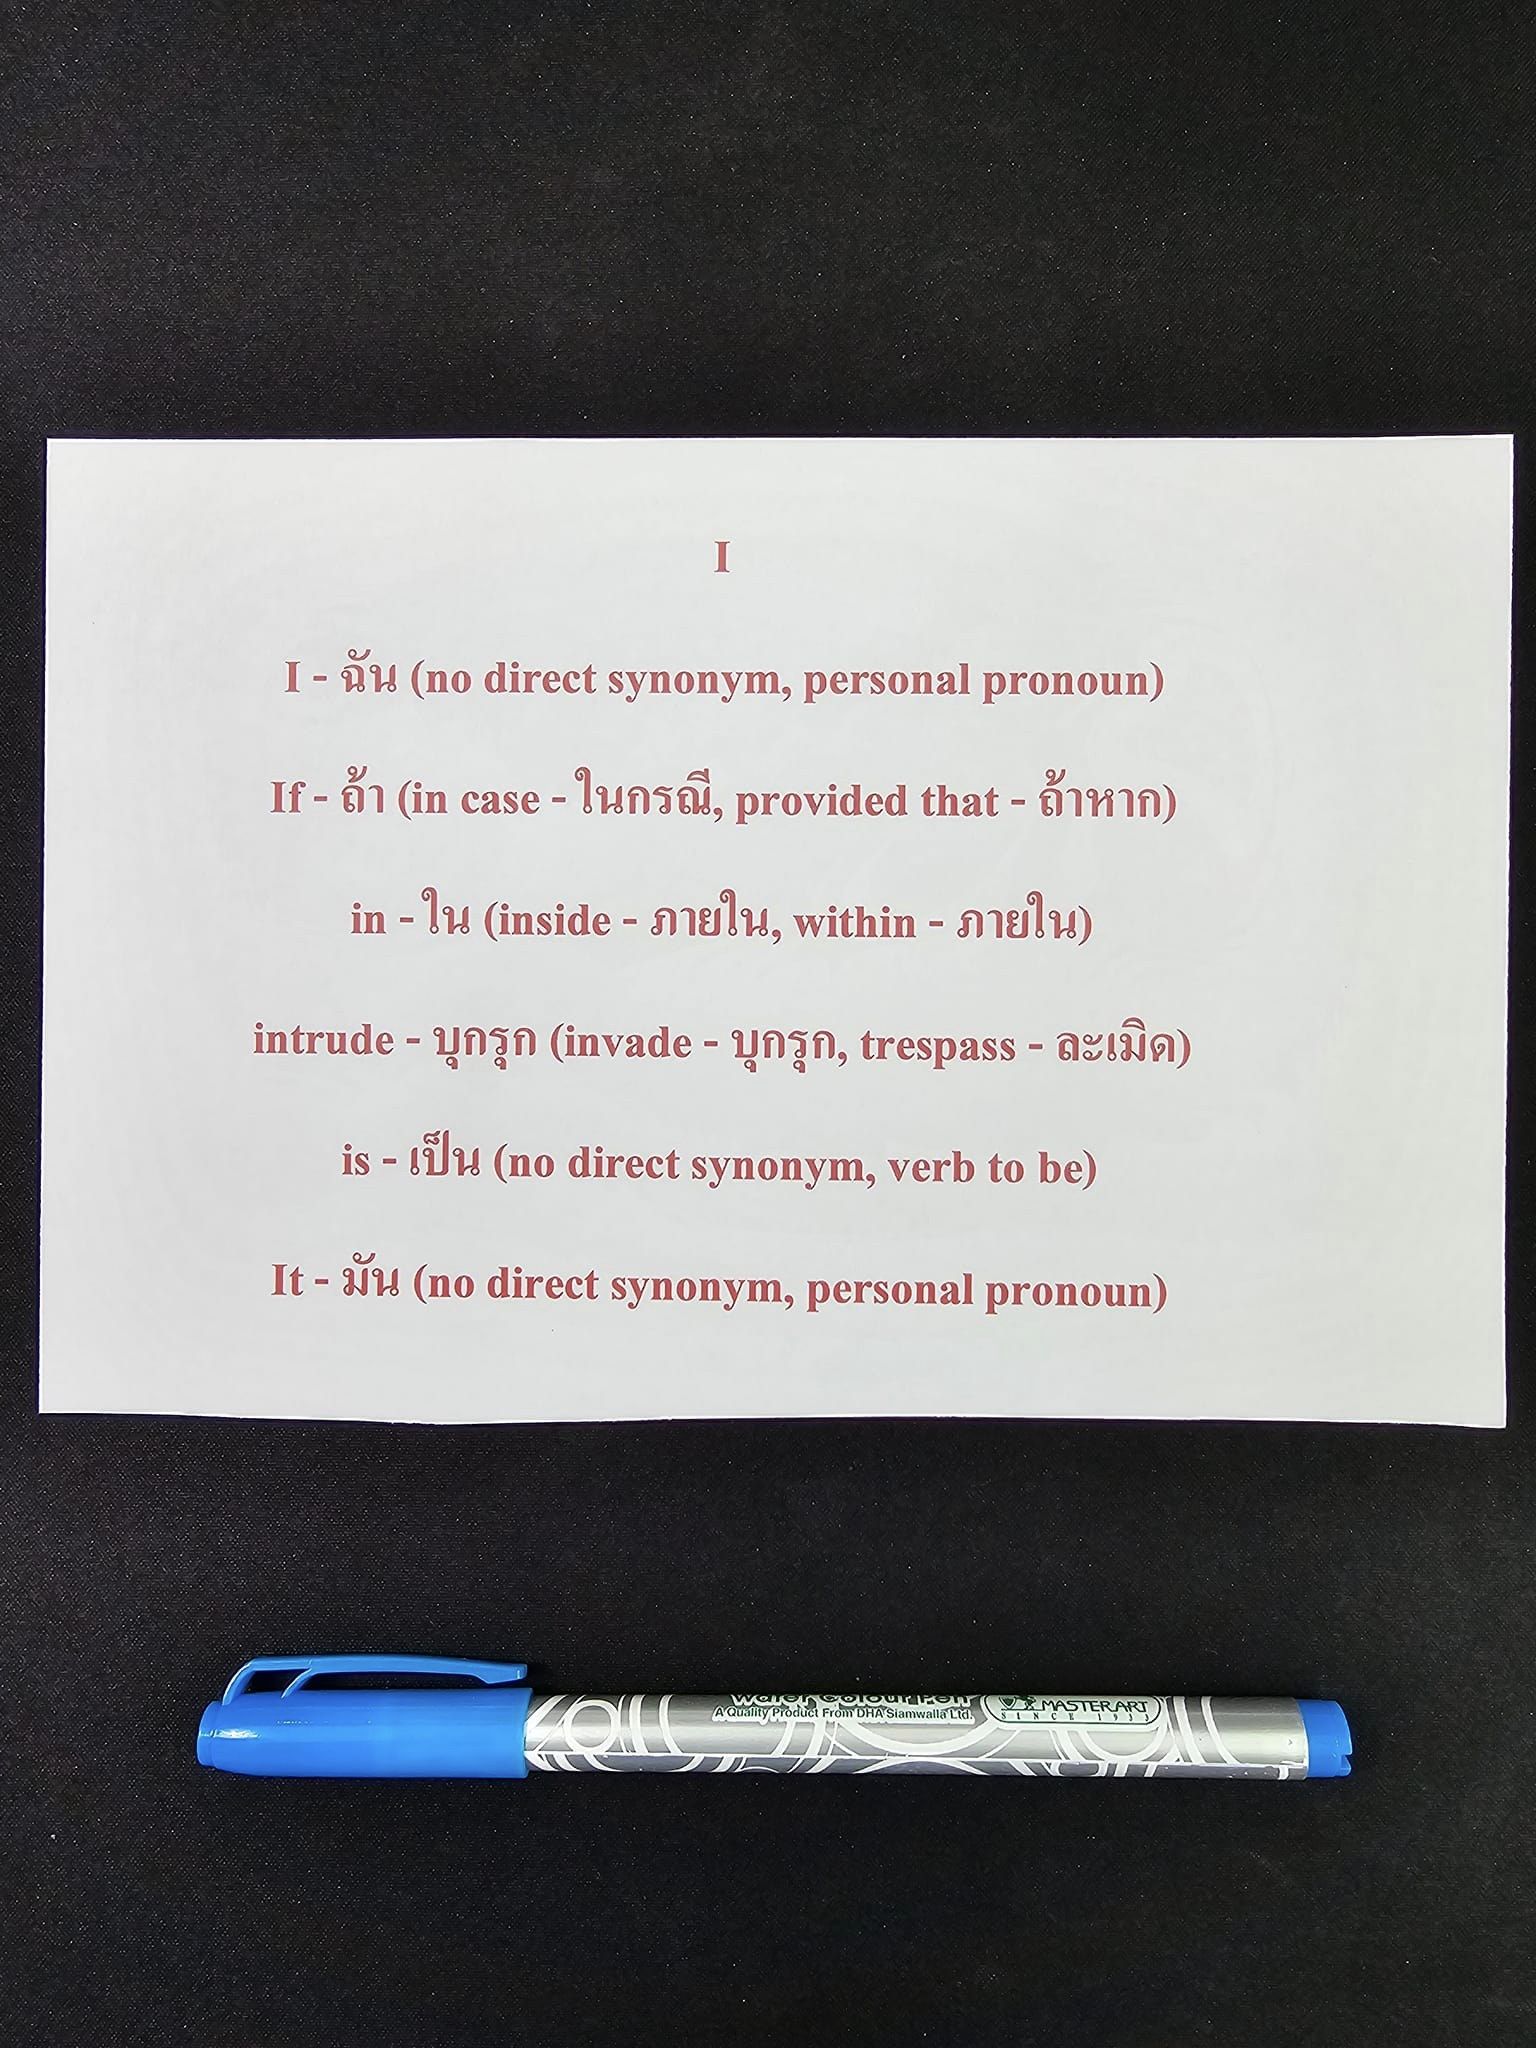 I
I - ฉัน (no direct synonym, personal pronoun)
If - ถ้า (in case - ในกรณี, provided that - ถ้าหาก)
in - ใน (inside - ภายใน, within - ภายใน)
intrude - บุกรุก (invade - บุกรุก, trespass - ละเมิด)
is - เป็น (no direct synonym, verb to be)
It - มัน (no direct synonym, personal pronoun)
Water Colour Pen
A Quality Product From DHA Siamwalla Ltd.
MASTERART
SINCE 1933